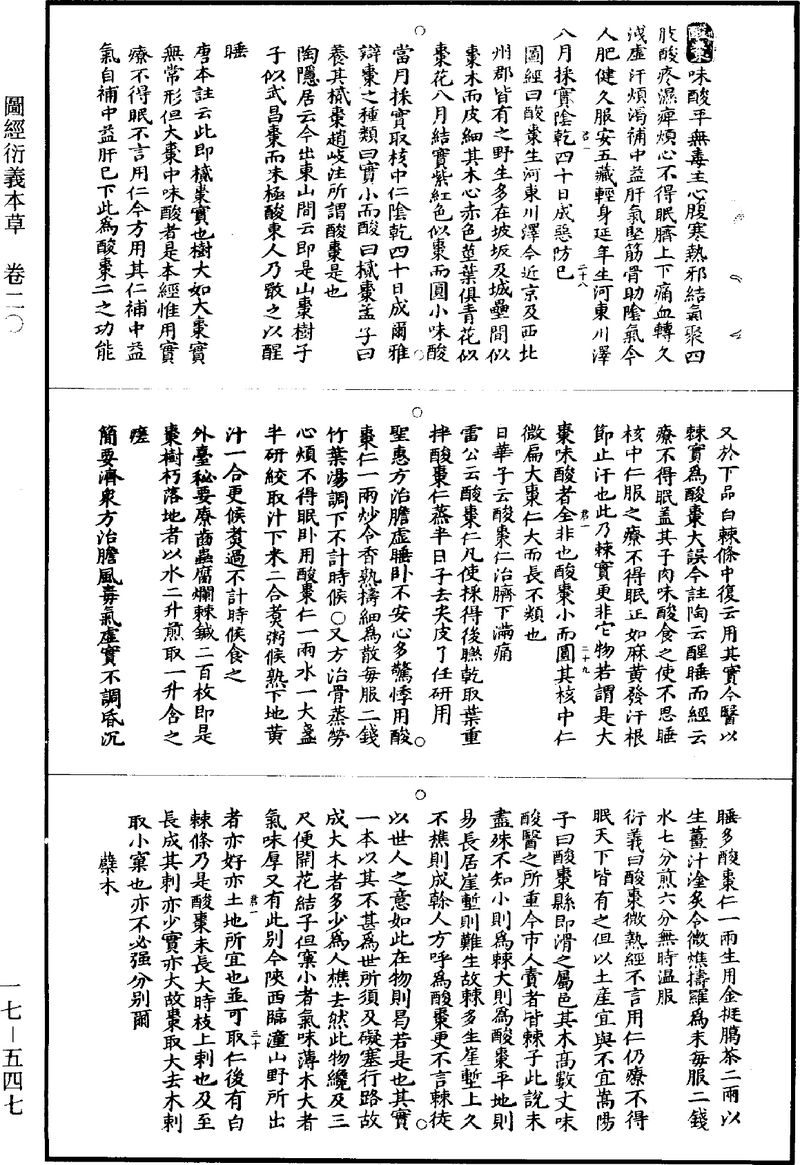 酸棗味酸平無毒主心腹寒熱邪結氣聚四
肢酸疼濕痺煩心不得眠臍上下痛血轉久
洩虛汗煩渴補中益肝氣堅筋骨助陰氣令
人肥健久服安五藏輕身延年生河東川澤
八月採實陰乾四十日成惡防已
圖經曰酸棗生河東川澤今近京及西北
州郡皆有之野生多在坡坂及城壘間似
棗木而皮細其木心赤色莖葉俱青花似
棗花八月結實紫紅色似棗而圓小味酸
當月採實取核中仁陰乾四十日成爾雅
辯棗之種類曰實小而酸曰樲棗孟子曰
養其樲棗趙岐注所謂酸棗是也
陶隱居云今出東山間云即是山棗樹子
子似武昌棗而未極酸東人乃啖之以醒
睡
唐本註云此即樲棗實也樹大如大棗實
無常形但大棗中味酸者是本經惟用實
療不得眠不言用仁今方用其仁補中益
氣自補中益肝已下此為酸棗二之功能
又於下品白棘條中復云用其實今醫以
棘實為酸棗大誤今註陶云醒睡而經云
療不得眠蓋其子肉味酸食之使不思睡
核中仁服之療不得眠正如麻黃發汗根
節止汗也此乃棘實更非它物若謂是大
棗味酸者全非也酸棗小而圓其核中仁
微扁大棗仁大而長不類也
日華子云酸棗仁治臍下滿痛
雷公云酸棗仁凡使採得後曬乾取葉重
拌酸棗仁蒸半日子去尖皮了任研用
聖惠方治膽虛睡卧不安心多驚悸用酸
棗仁一兩炒令香熟擣細為散每服二錢
竹葉湯調下不計時候〇又方治骨蒸勞
心煩不得眠卧用酸棗仁一兩水一大盞
半研絞取汁下米二合煮粥候熟下地黃
汁一合更候煮過不計時候食之
外臺秘要療齒蟲腐爛棘鍼二百枚即是
棗樹朽落地者以水二升煎取一升含之
瘥
簡要濟眾方治膽風毒氣虛實不調昏沉
睡多酸棗仁一兩生用金挺臈茶二兩以
生薑汁塗炙令微燋擣羅為末每服二錢
水七分煎六分無時温服
衍義曰酸棗微熱經不言用仁仍療不得
眠天下皆有之但以土產宜與不宜嵩陽
子曰酸棗縣即滑之屬邑其木高數丈味
酸醫之所重今市人賣者皆棘子此說未
盡殊不知小則為棘大則為酸棗平地則
易長居崖塹則難生故棘多生崖塹上久
不樵則成榦人方呼為酸棗更不言棘徒
以世人之意如此在物則曷若是也其實
一本以其不甚為世所須及礙塞行路故
成大木者多少為人樵去然此物纔及三
尺便開花結子但窠小者氣味薄木大者
氣味厚又有此別今陝西臨潼山野所出
者亦好亦土地所宜也並可取仁後有白
棘條乃是酸棗未長大時枝上刺也及至
長成其刺亦少實亦大故棗取大去木刺
取小窠也亦不必强分別爾
蘖木
圖經衍義本草　卷二〇
一七－五四七